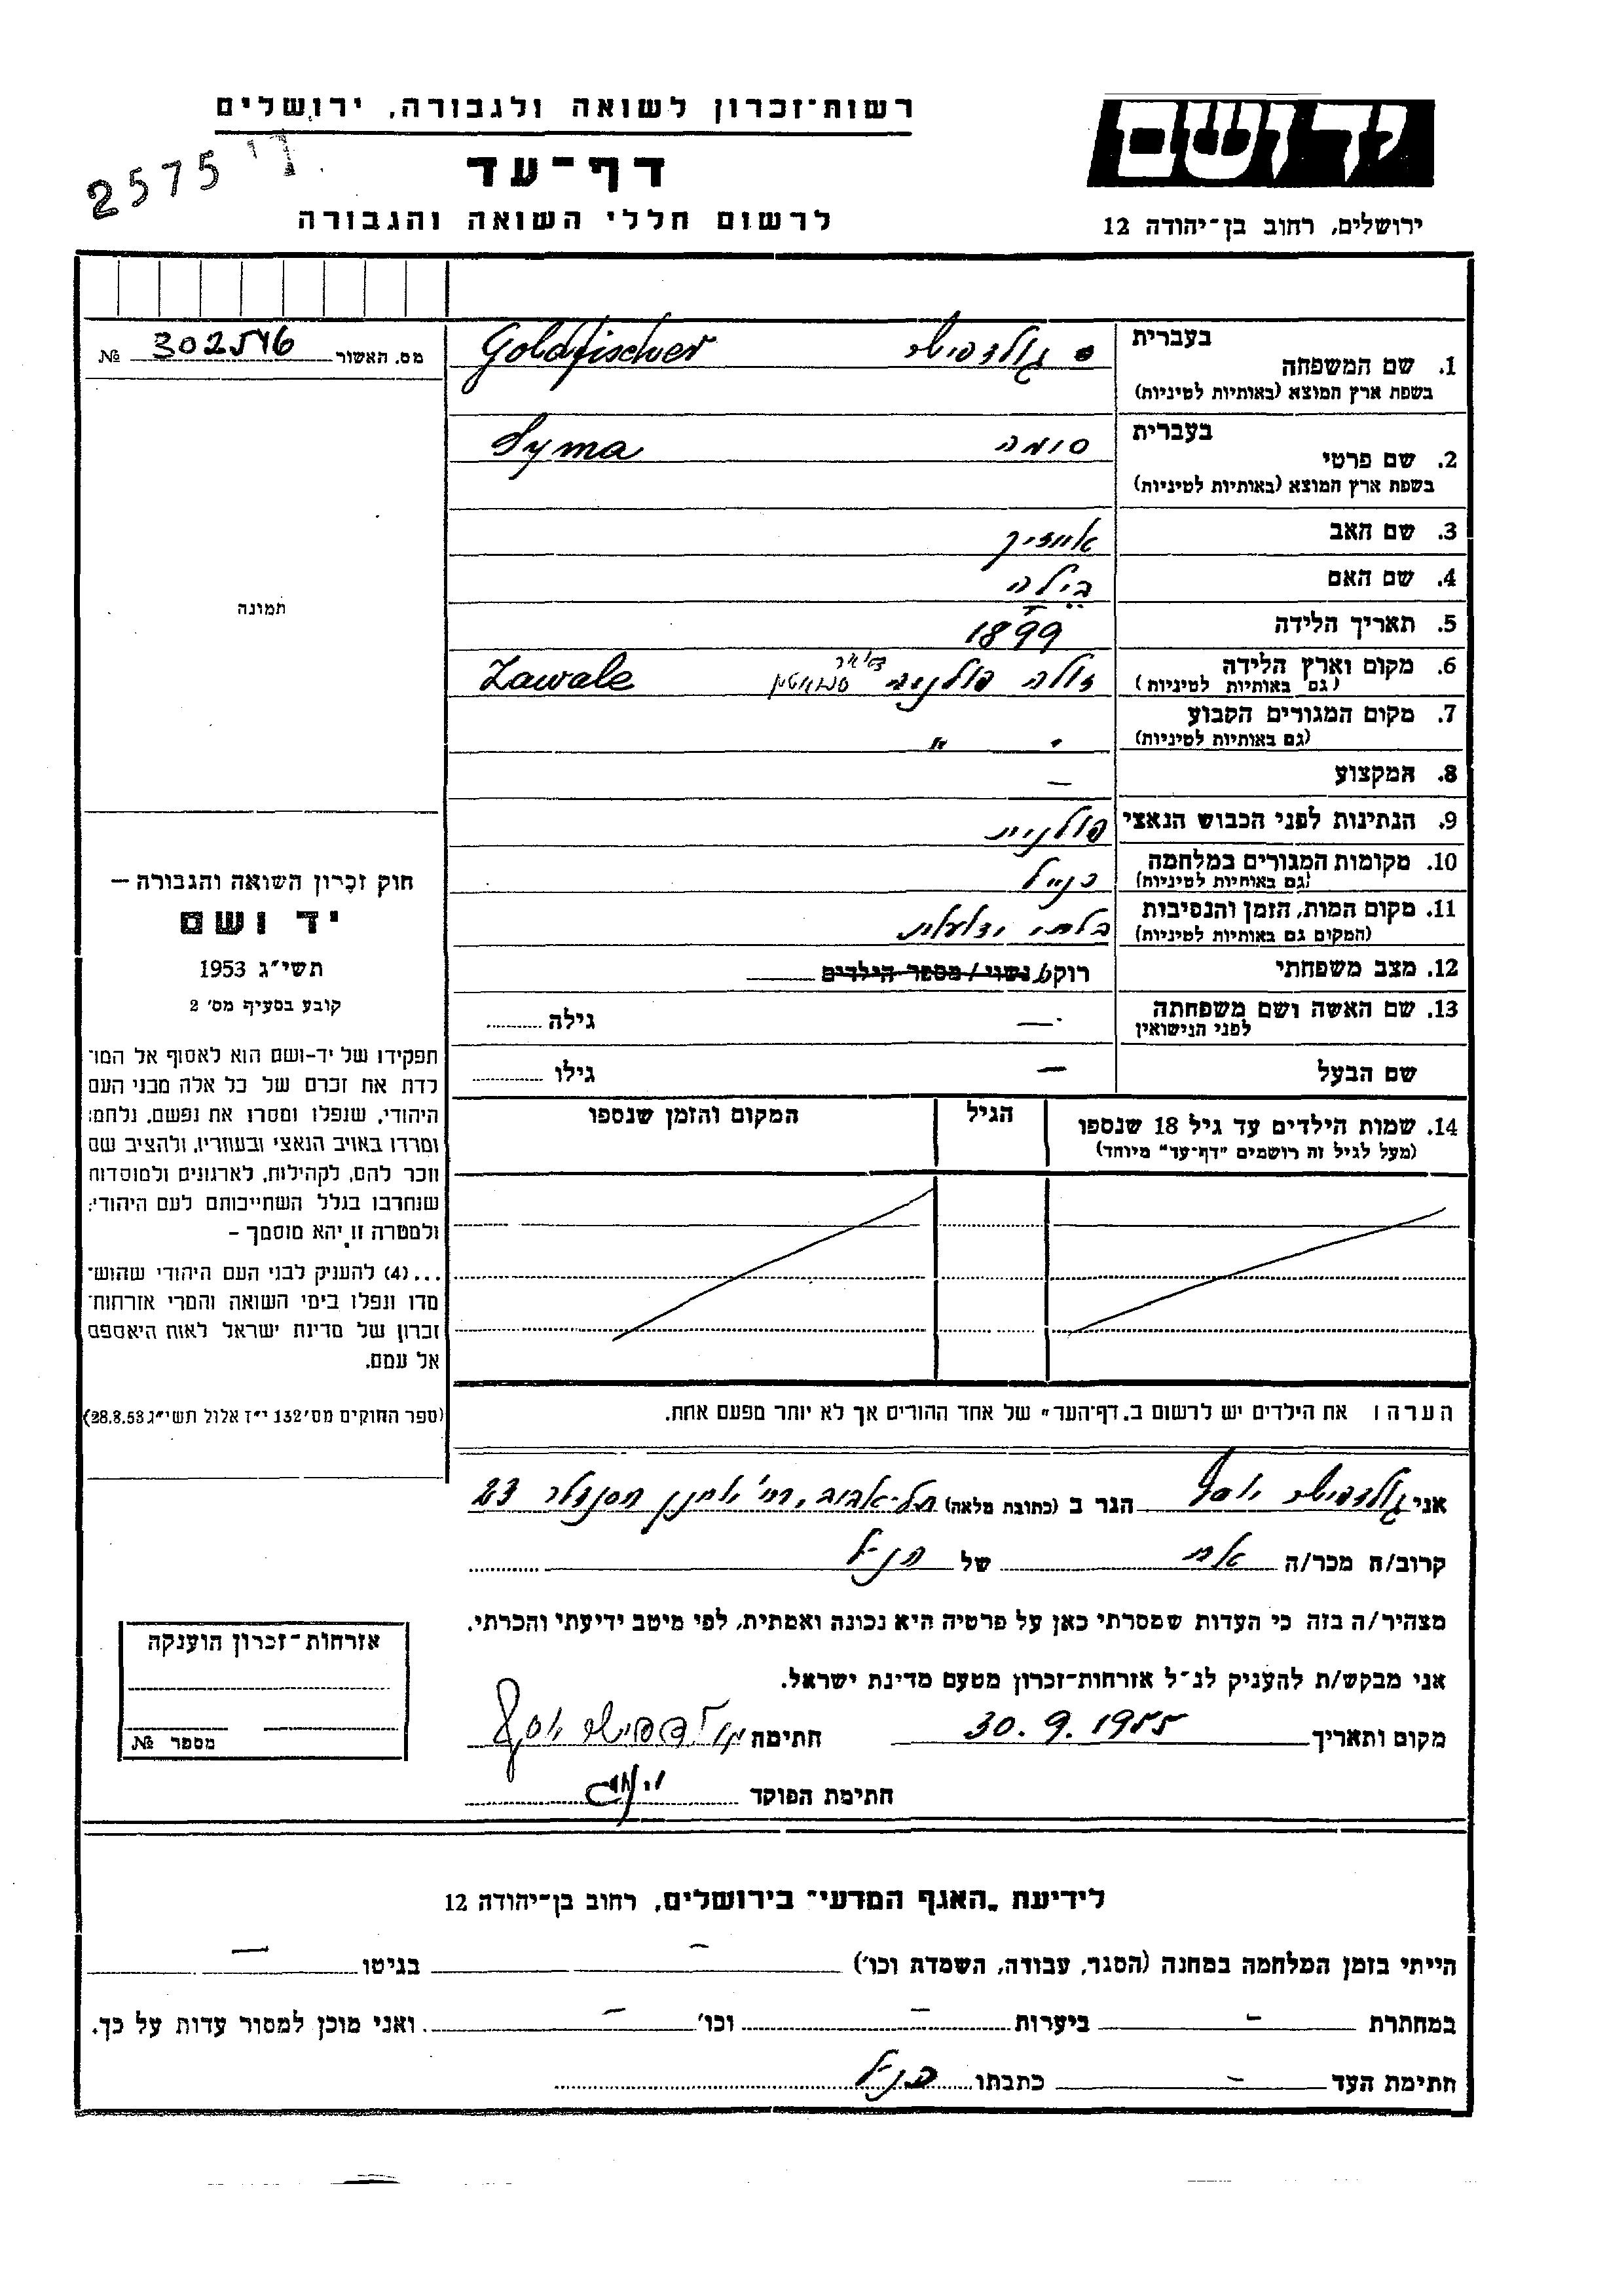 יד ושם
רשות־זכרון לשואה ולגבורה, ירושלים
דף־עד
לרשום חללי השואה והגבורה
ירושלים, רחוב בן־יהודה 12
2575
מס. האשור 302546 №
תמונה
חוק זכרון השואה והגבורה —
יד ושם
תשי״ג 1953
קובע בסעיף מס׳ 2
תפקידו של יד-ושם הוא לאסוף אל המו־
לדת את זכרם של כל אלה מבני העם
היהודי, שנפלו ומסרו את נפשם, נלחמו
ומרדו באויב הנאצי ובעוזריו, ולהציב שם
וזכר להם, לקהילות, לארגונים ולמוסדות
שנחרבו בגלל השתייכותם לעם היהודי;
ולמטרה זו יהא מוסמך —
...(4) להעניק לבני העם היהודי שהוש־
מדו ונפלו בימי השואה והמרי אזרחות־
זכרון של מדינת ישראל לאות היאספם
אל עמם.
(ספר החוקים מס׳ 132 י״ז אלול תשי״ג 28.8.53)
בעברית
1. שם המשפחה גולדפישר Goldfischer
בשפת ארץ המוצא (באותיות לטיניות)
בעברית
2. שם פרטי סימה Syma
בשפת ארץ המוצא (באותיות לטיניות)
3. שם האב אייזיק
4. שם האם ביילה
5. תאריך הלידה 1899
6. מקום וארץ הלידה פולניה Zawale
(גם באותיות לטיניות)
7. מקום המגורים הקבוע " "
(גם באותיות לטיניות)
8. המקצוע —
9. הנתינות לפני הכבוש הנאצי פולנית
10. מקומות המגורים במלחמה כנ״ל
(גם באותיות לטיניות)
11. מקום המות, הזמן והנסיבות בלתי ידועות
(המקום גם באותיות לטיניות)
12. מצב משפחתי רוק/ נשוי / מספר הילדים
13. שם האשה ושם משפחתה — גילה
לפני הנישואין
שם הבעל — גילו
14. שמות הילדים עד גיל 18 שנספו הגיל המקום והזמן שנספו
(מעל לגיל זה רושמים ״דף־עד״ מיוחד)
הערה: את הילדים יש לרשום ב„דף־העד״ של אחד ההורים אך לא יותר מפעם אחת.
אני גולדפישר יוסף הגר ב (כתובת מלאה) תל-אביב, רח׳ יוחנן הסנדלר 23
קרוב/ה מכר/ה אח של הנ״ל
מצהיר/ה בזה כי העדות שמסרתי כאן על פרטיה היא נכונה ואמתית, לפי מיטב ידיעתי והכרתי.
אני מבקש/ת להעניק לנ״ל אזרחות־זכרון מטעם מדינת ישראל.
מקום ותאריך 30.9.1955 חתימה גולדפישר יוסף
חתימת הפוקד
אזרחות־זכרון הוענקה
מספר №
לידיעת „האגף המדעי״ בירושלים, רחוב בן־יהודה 12
הייתי בזמן המלחמה במחנה (הסגר, עבודה, השמדת וכו׳) — בגיטו —
במחתרת — ביערות — וכו׳ — ואני מוכן למסור עדות על כך.
חתימת העד — כתבתו הנ״ל